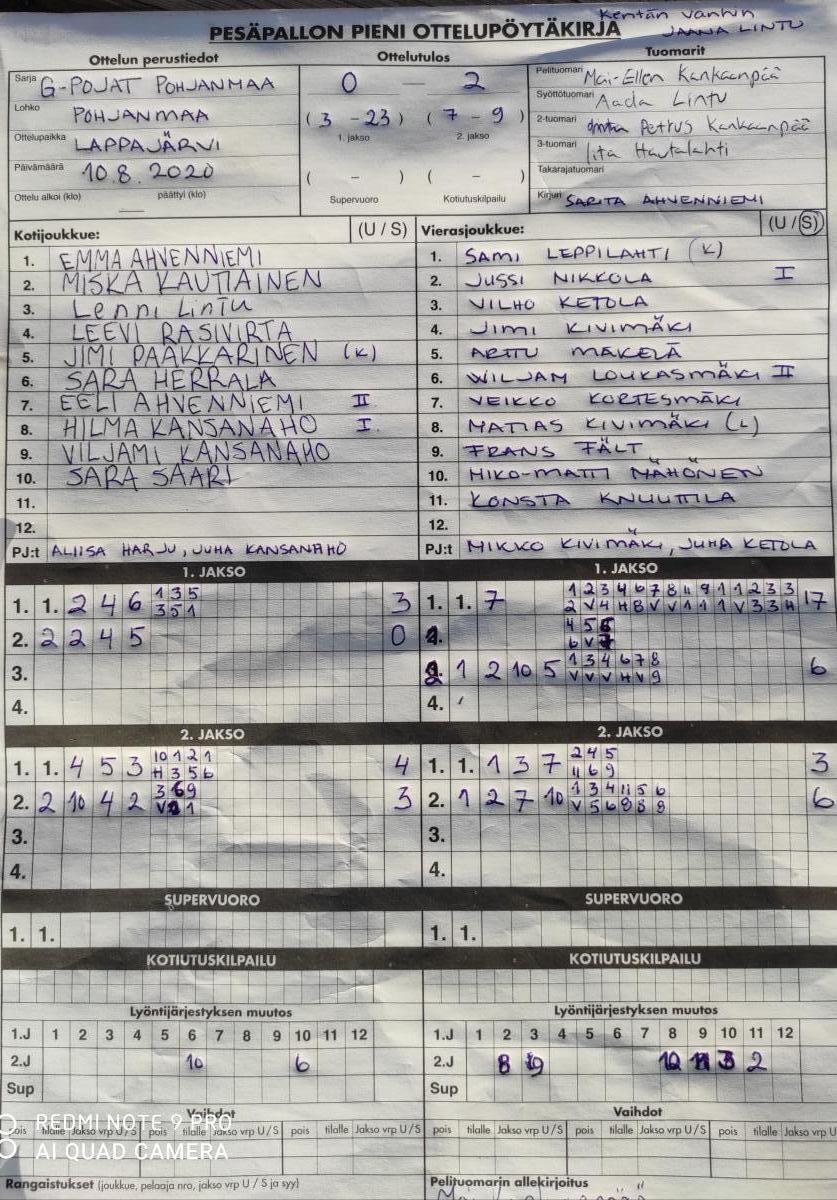 Kentän vanhin
JAANA LINTU
PESÄPALLON PIENI OTTELUPÖYTÄKIRJA
Ottelun perustiedot
Sarja G-POJAT POHJANMAA
Lohko POHJANMAA
Ottelupaikka LAPPAJÄRVI
Päivämäärä 10.8.2020
Ottelu alkoi (klo) — päättyi (klo)
Ottelutulos
0 — 2
(3 - 23) (7 - 9)
1. jakso 2. jakso
( - ) ( - )
Supervuoro Kotiutuskilpailu
Tuomarit
Pelituomari Mai-Ellen Kankaanpää
Syöttötuomari Aada Lintu
2-tuomari Petrus Kankaanpää
3-tuomari Iita Hautalahti
Takarajatuomari
Kirjuri SARITA AHVENNIEMI
Kotijoukkue: (U / S)
1. EMMA AHVENNIEMI
2. MISKA KAUTIAINEN
3. Lenni Lintu
4. LEEVI RASIVIRTA
5. JIMI PAAKKARINEN (K)
6. SARA HERRALA
7. EELI AHVENNIEMI II
8. HILMA KANSANAHO I
9. VILJAMI KANSANAHO
10. SARA SAARI
11.
12.
PJ:t ALIISA HARJU, JUHA KANSANAHO
Vierasjoukkue: (U / S)
1. SAMI LEPPILAHTI (K)
2. JUSSI NIKKOLA I
3. VILHO KETOLA
4. JIMI KIVIMÄKI
5. ARTTU MÄKELÄ
6. WILJAM LOUKASMÄKI II
7. VEIKKO KORTESMÄKI
8. MATIAS KIVIMÄKI (L)
9. FRANS FÄLT
10. MIKO-MATTI NÄHÖNEN
11. KONSTA KNUUTTILA
12.
PJ:t MIKKO KIVIMÄKI, JUHA KETOLA
1. JAKSO
1. 1. 2 4 6 1 3 5 3
3 5 1
2. 2 2 4 5 0
3.
4.
1. JAKSO
1. 1. 7 1 2 3 4 6 7 8 11 9 1 1 2 3 3 17
2 V 4 H 8 V V 1 1 1 V 3 3 H
4 5 6
6 V 7
2. 1 2 10 5 1 3 4 6 7 8 6
V V V H V 9
4.
2. JAKSO
1. 1. 4 5 3 10 1 2 1 4
H 3 5 6
2. 2 10 4 2 3 6 9 3
3.
4.
2. JAKSO
1. 1. 1 3 7 2 4 5 3
11 6 9
2. 1 2 7 10 1 3 4 11 5 6 6
V 5 6 8 8 8
3.
4.
SUPERVUORO
1. 1.
SUPERVUORO
1. 1.
KOTIUTUSKILPAILU
KOTIUTUSKILPAILU
Lyöntijärjestyksen muutos
1.J 1 2 3 4 5 6 7 8 9 10 11 12
2.J 10 6
Sup
Lyöntijärjestyksen muutos
1.J 1 2 3 4 5 6 7 8 9 10 11 12
2.J 8 9 10 11 3 2
Sup
Vaihdot
pois tilalle Jakso vrp U / S pois tilalle Jakso vrp U / S pois tilalle Jakso vrp U / S
Vaihdot
pois tilalle Jakso vrp U / S pois tilalle Jakso vrp U / S pois tilalle Jakso vrp U
REDMI NOTE 9 PRO
AI QUAD CAMERA
Rangaistukset (joukkue, pelaaja nro, jakso vrp U / S ja syy)
Pelituomarin allekirjoitus